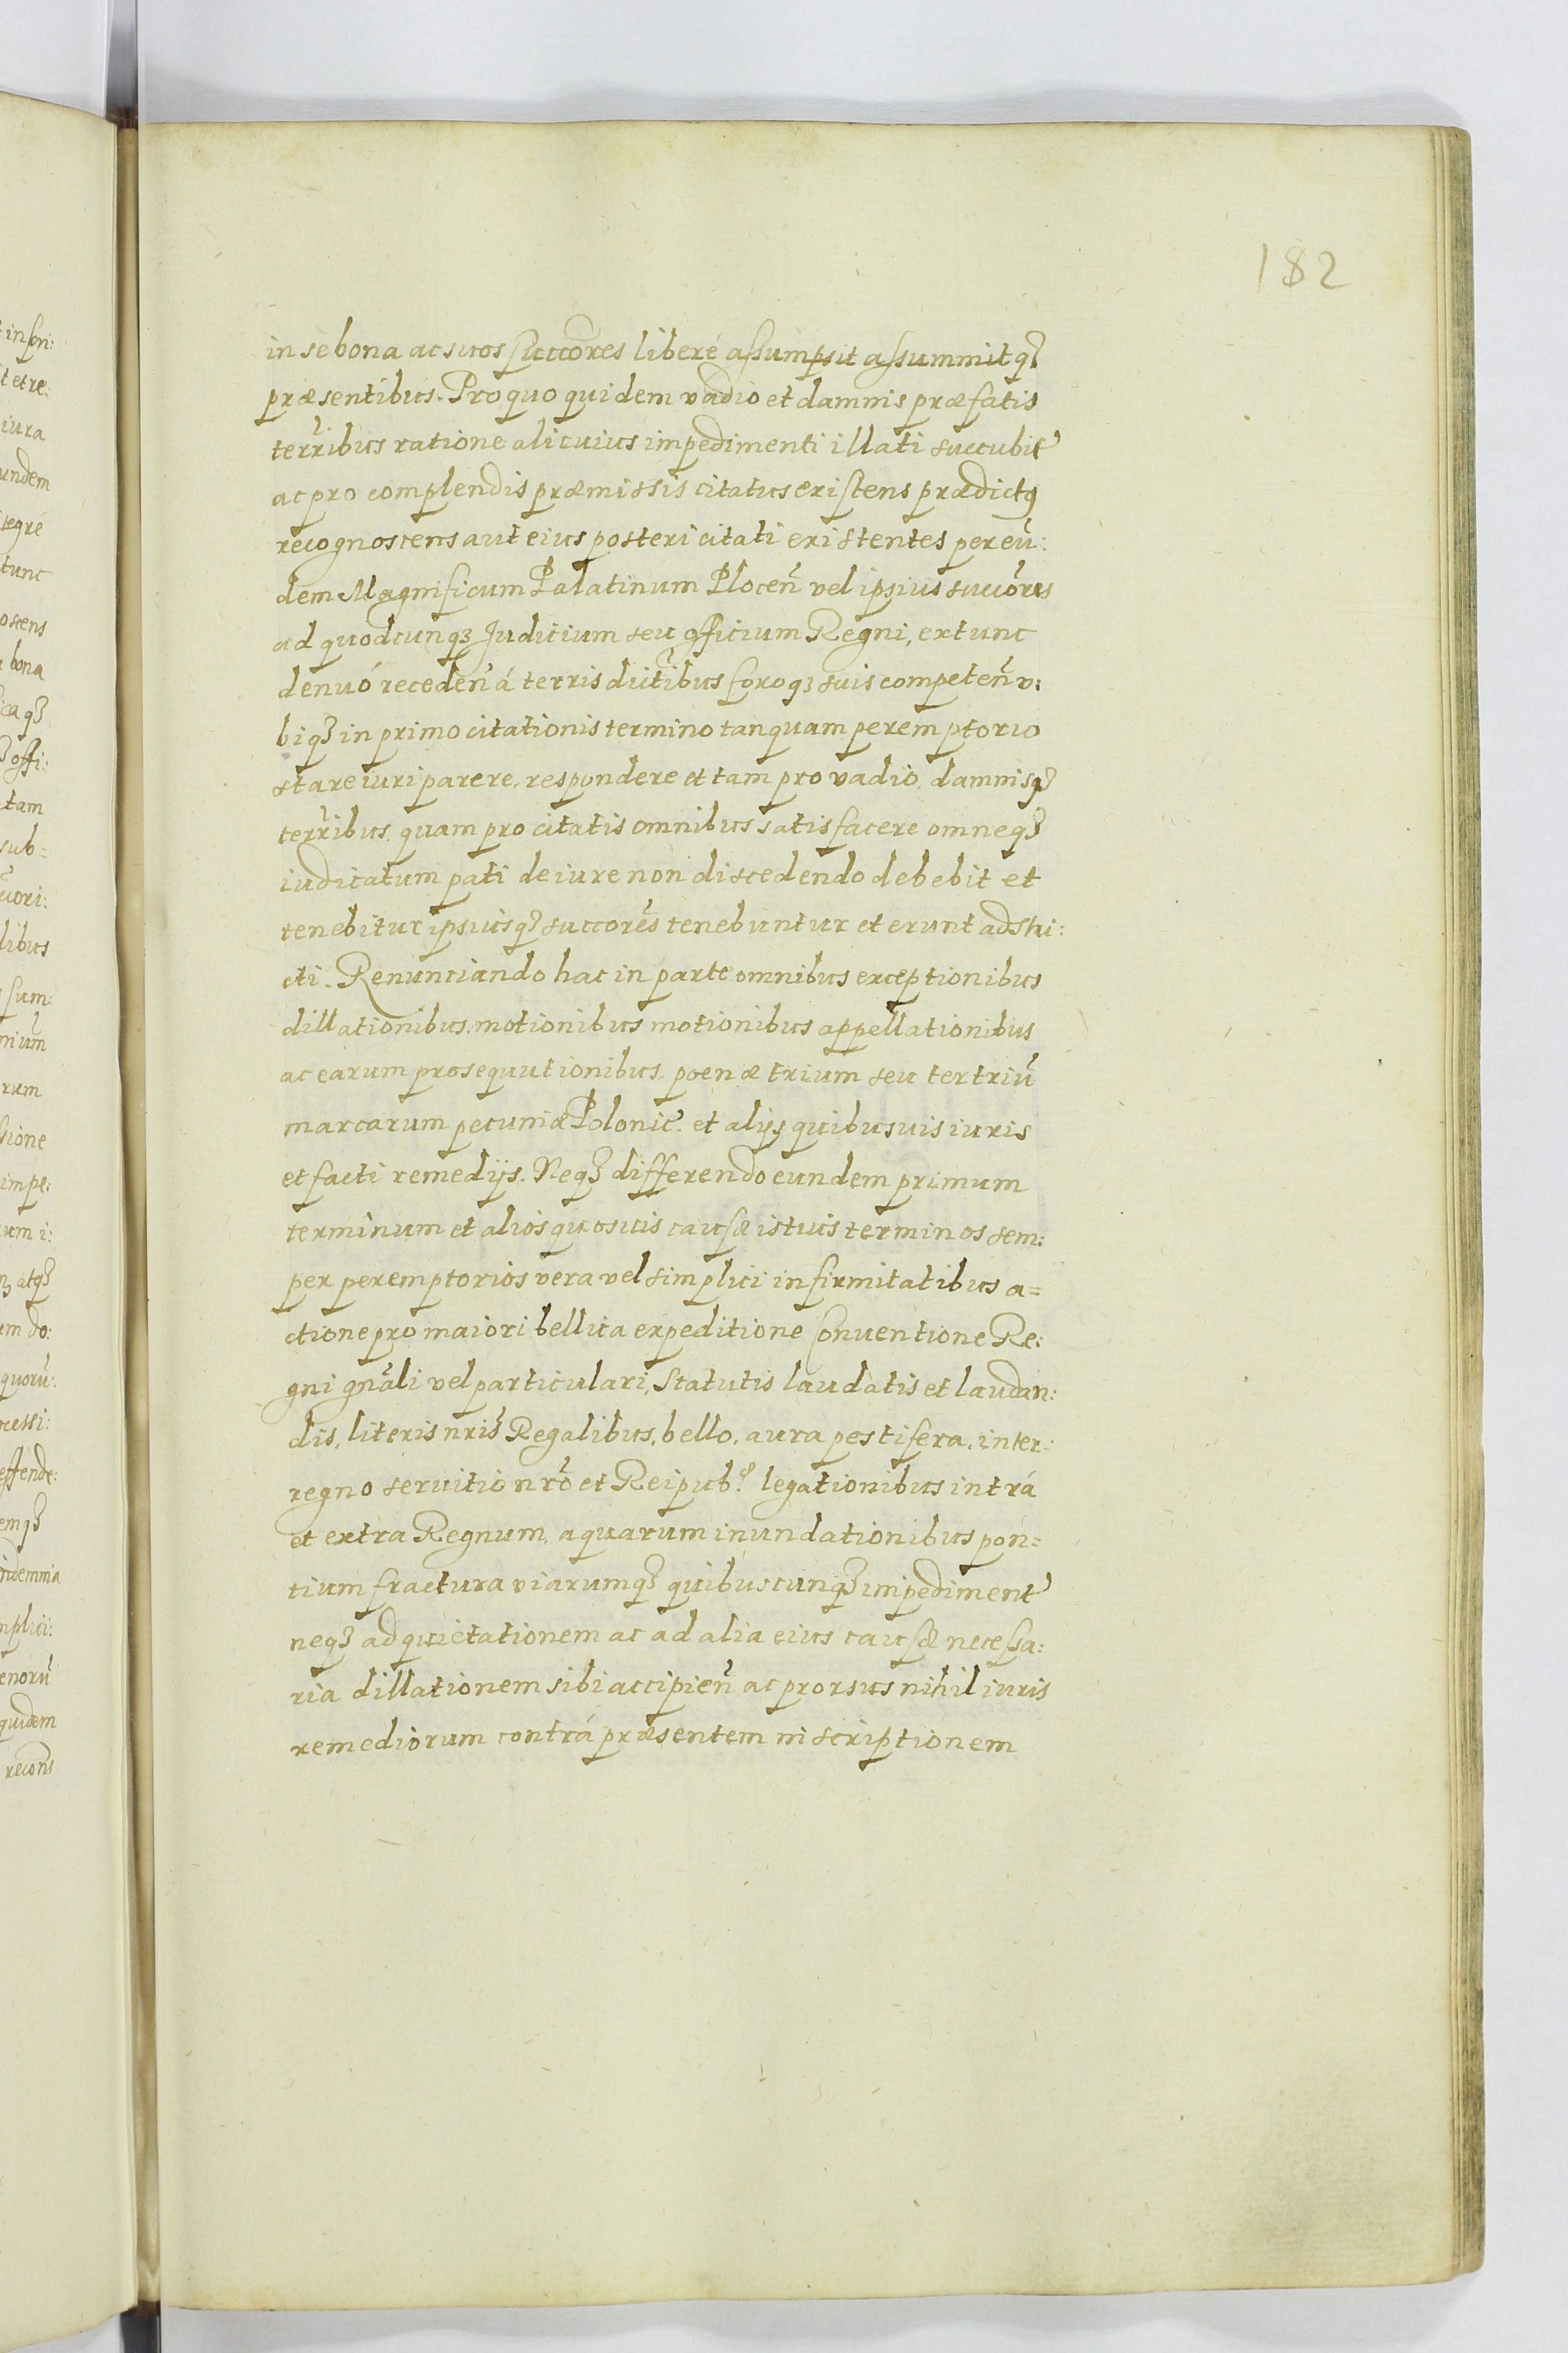 182
in se bona ac suos succores liberé assumpsit assummitq3
præsentibus. Pro quo quidem vadio et damnis præfatis
terribus ratione alicuius impedimenti illati succubit
ac pro complendis præmissis citatus existens prædictq
recognoscens aut eius posteri citati existentes per eū:
dem Magnificum Palatinum Plocen̄ vel ipsius succores
ad quodcunq3 Judicium seu officium Regni, extunc
denuó receden̄ á terris dictibus foroq3 suis competen̄ v:
biq3 in primo citationis termino tanquam peremptorio
stare iuri parere, respondere et tam pro vadio, damnisq3
terribus, quam pro citatis omnibus satisfacere omneq3
iudicatum pati de iure non discedendo debebit et
tenebitur ipsiusq3 succores tenebuntur et erunt adstri:
cti. Renunciando hac in parte omnibus exceptionibus
dillationibus, motionibus motionibus appellationibus
ac earum prosequutionibus, poenæ trium seu ter triū
marcarum pecuniæ Polonic. et alijs quibusuis iuris
et facti remedijs. Neq3 differendo eundem primum
terminum et alios quosuis causæ istius terminos sem:
per peremptorios vera vel simplici infirmitatibus a=
ctione pro maiori bellica expeditione conventione Re:
gni gn̄ali vel particulari, Statutis laudatis et laudan:
dis, literis nris̄ Regalibus, bello, aura pestifera, inter:
regno servitio nrō et Reipub. legationibus intrá
et extra Regnum, aquarum inundationibus pon=
tium fractura viarumq3 quibuscunq3 impediment
neq3 ad quietationem ac ad alia eius causæ necessa:
ria dillationem sibi accipien̄ ac prorsus nihil iuris
remediorum contrá præsentem inscriptionem